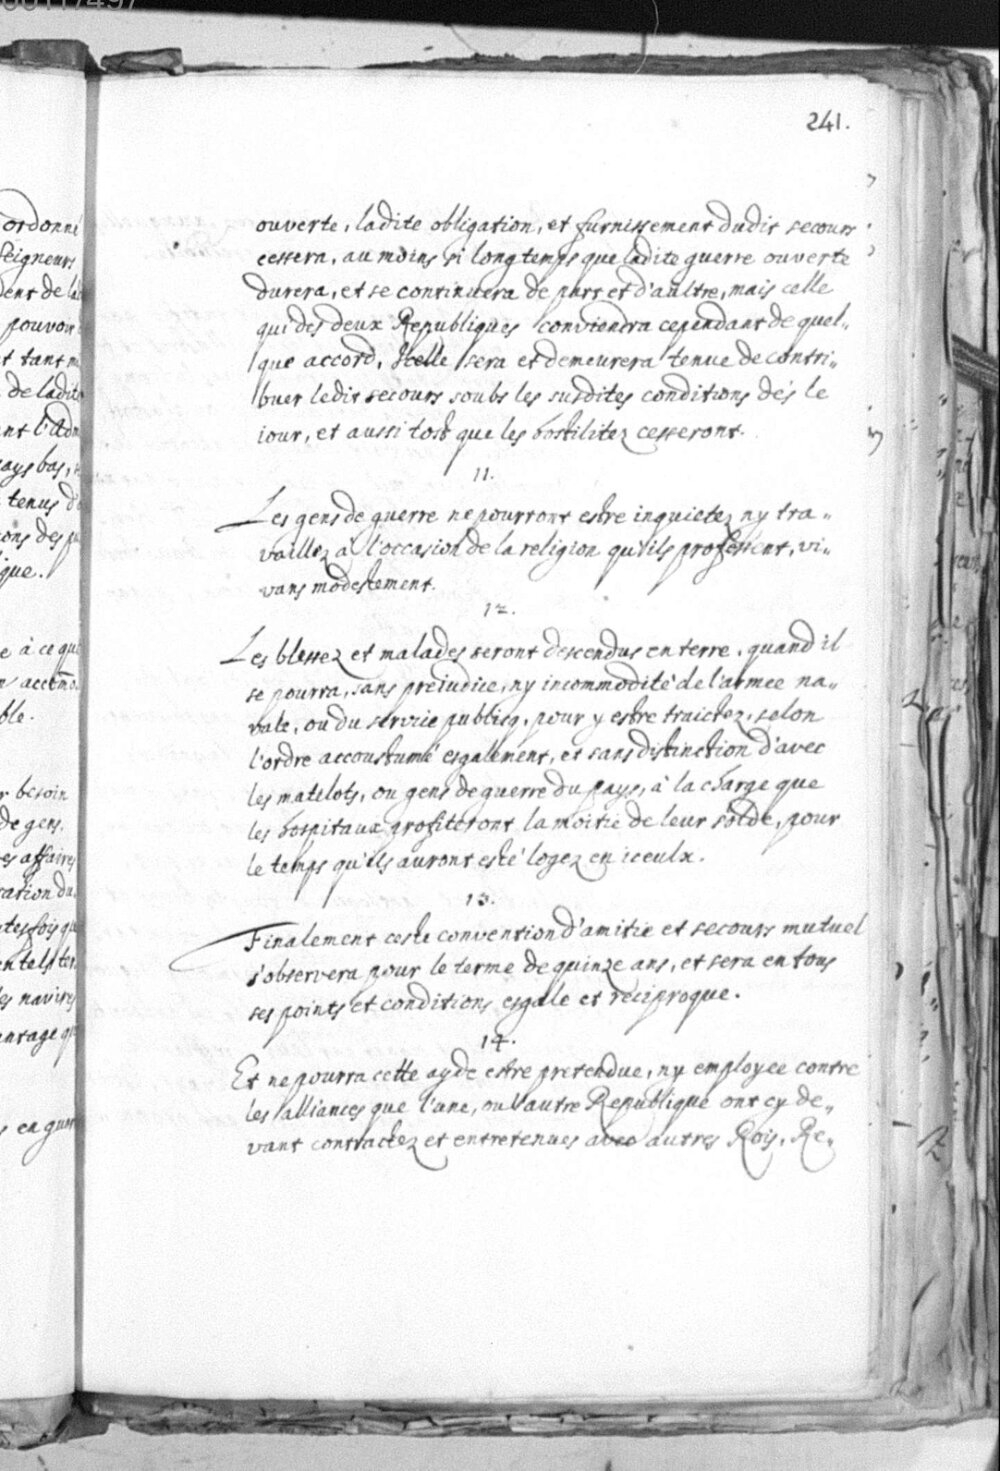 241.
ouverte, ladite obligation, et furnissement dudit secours
cessera, au moins si long temps que ladite guerre ouverte
durera, et se continuera de part et d'aultre, mais celle
qui des deux Republiques conviendra cependant de quel„
que accord, Icelle sera et demeurera tenue de contri„
buer ledit secours soubs les susdites conditions dés le
iour, et aussi tost que les hostilitez cesseront.
11.
Les gens de guerre ne pourront estre inquietez ny tra„
vaillez à l'occasion de la religion qu'ils professent, vi„
vans modestement.
12.
Les blessez et malades seront descendus en terre, quand il
se pourra, sans preiudice, ny incommodité de l'armee na„
vale, ou du servie publicq, pour y estre traictez, selon
l'ordre accoustumé esgalement, et sans distinction d'avec
les matelots, ou gens de guerre du pays, à la charge que
les hospitaux profiteront la moitie de leur solde, pour
le temps qu'ils auront esté logez en iceulx.
13.
Finalement ceste convention d'amitie et secours mutuel
s'observera pour le terme de quinze ans, et sera en tous
ses points et conditions esgale et reciproque.
14.
Et ne pourra cette ayde estre pretendue, ny employee contre
les alliances que l'une, ou l'autre Republique ont cy de„
vant contractez et entretenues avec autres Rois, Re„
ordonné
Seigneurs
dent de la
pouvoir
tant
de ladite
ays bas,
tenus
ons des
ique.
à ce que
ble.
besoin
de gens.
es affaires
ration du
en tels
es navires
antage
en guer